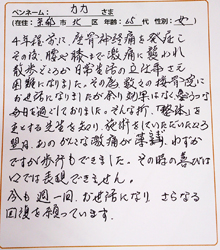 ペンネーム: カカ さま
(在住: 京都 市 北 区 年齢: 65 代 性別: 女 )
4年程前に、座骨神経痛を発症し
その後、腰や膝まで激痛に襲われ
散歩どころか日常生活の立仕事さえ
困難になりました。その為数々の接骨院に
かよい お世話になりましたが余り効果はなく
毎日を過ごしておりました。そんな折、「整体」を
主とする先生を知り、施術をしていただいたところ
翌日、あのがんこな激痛が薄れ、わずか
ですが歩行もできました。その時の喜びは
口では表現できません。
今も週一回、お世話になり、さらなる
回復を願っています。